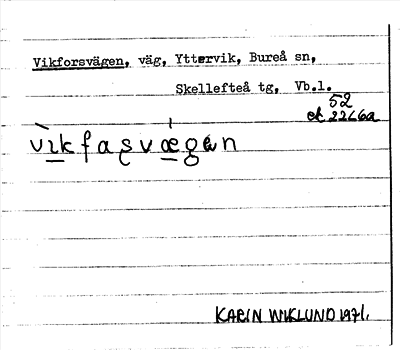 Vikforsvägen, väg, Yttervik, Bureå sn,
Skellefteå tg, Vb.l.
52
ek 22L6a
vɪkfaʂvægən
KARIN WIKLUND 1971.